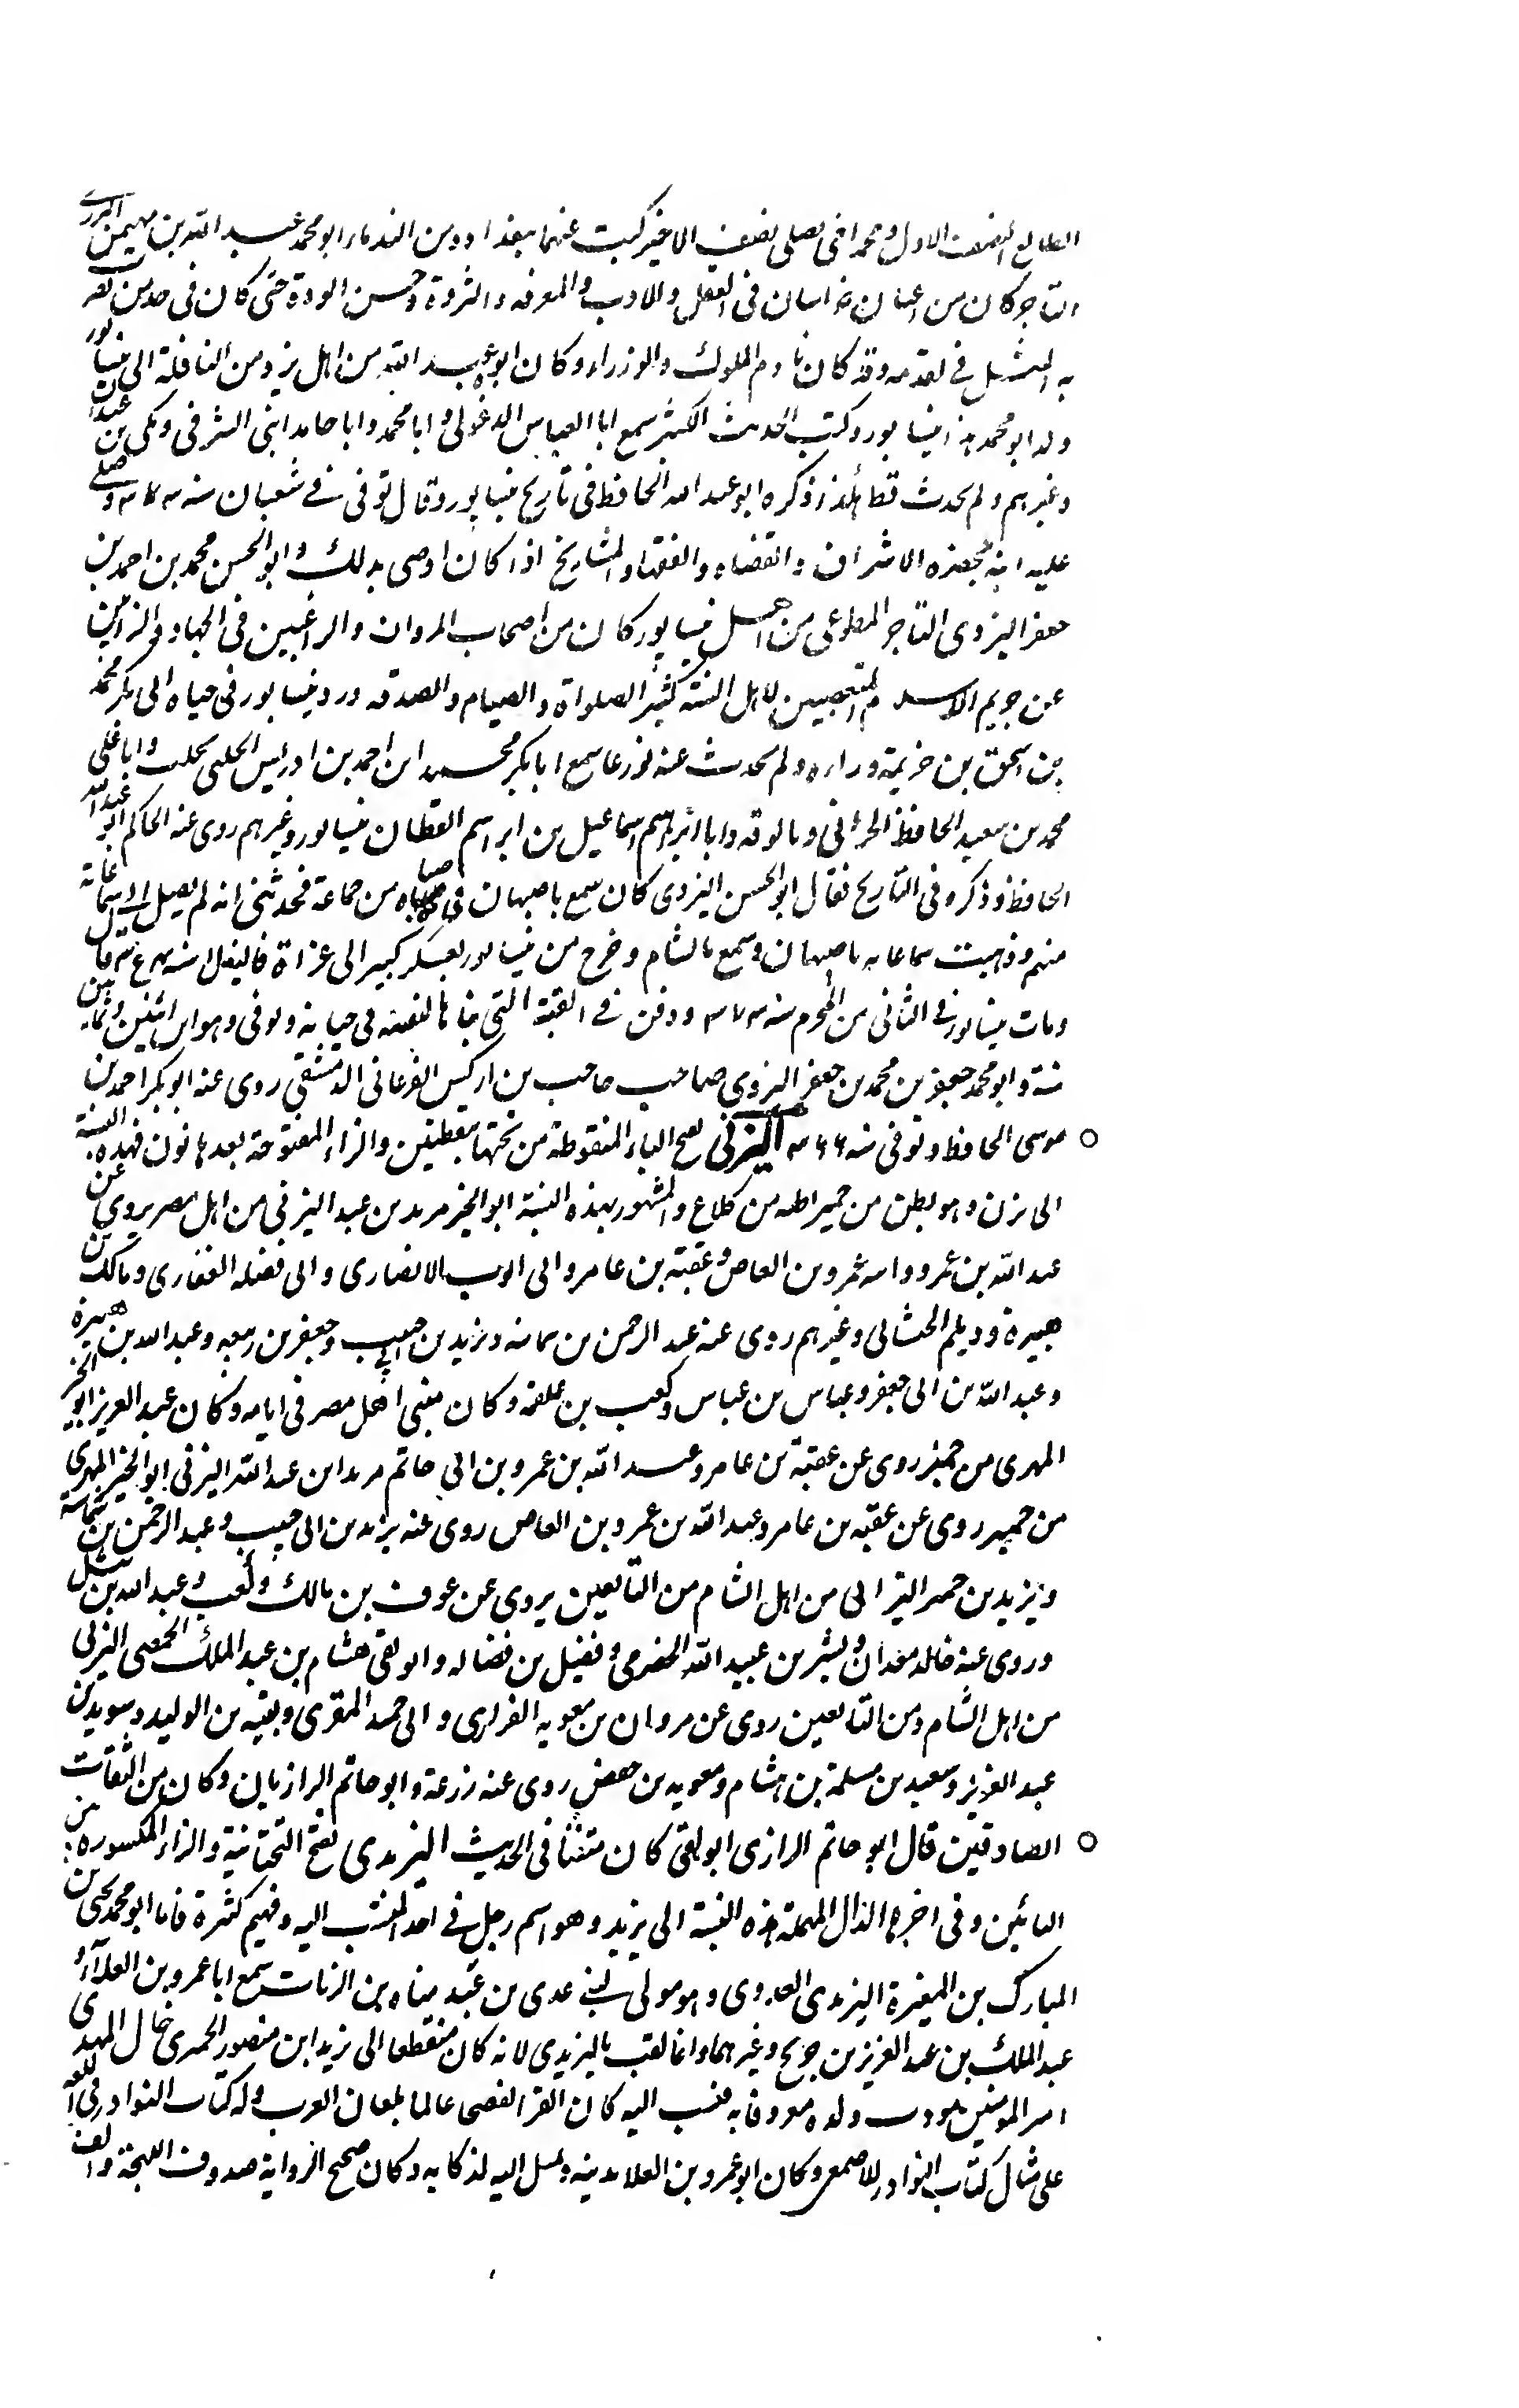 الطالع النصف الاول ومحمد اخى يصلى نصف الاخير كتبت عنهما ببغداد ومن القدماء ابو محمد عبد الله بن
التاجر كان من اعيان خراسان فى العقل والادب والمعرفه والثروة وحسن المودة حتى كان فى
به المثل فى تقدمه وقد كان نادم الملوك والوزراء وكان ابو عبد الله من اهل يزد من الناقلة الى نيسابور
ولد ابو محمد هذا نيسابور وكتب الحديث الكثير سمع ابا العباس الدغولى و ابا محمد وابا حامد ابنى الشرقى ومكى بن عبدان
وغيرهم ولم يحدث قط ذكره ابو عبد الله الحافظ فى تاريخ نيسابور وقال توفى فى شعبان سنه وصلى
عليه ابنه بحضرة الاشراف والقضاه والفقها والمشايخ اذا كان اوصى بذلك وابو الحسن محمد بن احمد بن
جعفر اليزدى التاجر المطوعى من اهل نيسابور كان من اصحاب المروات والراغبين فى الجهاد والزابين
عن حريم الاسلام المتعصبين لاهل السنة كثير الصلواة والصيام والصدقه ورد نيسابور فى حياه ابى بكر محمد
بن اسحق بن خزيمة وراه ولم يحدث عنه تورعا سمع ابا بكر محمد ابن احمد بن ادريس الحلبى بحلب وابا على
محمد بن سعيد الحافظ الحرانى وبالرقه وابا ابراهيم اسماعيل بن ابراهيم القطان نيسابور وغيرهم روى عنه الحاكم ابو عبد الله
الحافظ وذكره فى التاريخ فقال ابو الحسن اليزدى كان سمع باصبهان فى صباه من جماعة فحدثنى انه لم يصل الى سماعاته
منهم وذهبت سماعاته باصبهان وسمع بالشام وخرج من نيسابور بعسكر كبير الى غزاة
ومات نيسابور فى الثانى من المحرم سنه ٣٧٣ ودفن فى القبة التى بناها لنفسه فى حياته وتوفى وهو ابن اثنين وثمانين
سنة وابو محمد جعفر بن محمد بن جعفر اليزدى صاحب حاجب بن اركين الفرغانى الدمشقى روى عنه ابو بكر احمد بن
موسى الحافظ وتوفى سنه ٣٦٦ اليزنى بفتح الياء المنقوطة من تحتها بنقطتين والزاء المفتوحة بعدها نون هذه النسبة
الى يزن وهو بطن من حمير اظنه من كلاع والمشهور بهذه النسبة ابو الخير مرثد بن عبد اليزنى من اهل مصر يروى عن
عبد الله بن عمرو وامه عمرو بن العاص وعقبه بن عامر وابى ايوب الانصارى وابى فضله الغفارى ومالك بن
هبيرة وديلم الحشانى وغيرهم روى عنه عبد الرحمن بن شماسه ويزيد بن ابى حبيب وجعفر بن ربيعه وعبد الله بن هبيرة
وعبد الله بن ابى جعفر وعباس بن عباس وكعب بن علقمه وكان مفتى اهل مصر فى ايامه وكان عبد العزيز ابو الخير
المهرى من حمير روى عن عقبة بن عامر وعبد الله بن عمرو بن ابى حاتم مرثد ابن عبد الله اليزنى ابو الخير المهرى
من حمير روى عن عقبه بن عامر وعبد الله بن عمرو بن العاص روى عنه يزيد بن ابى حبيب وعبد الرحمن بن شماسة
ويزيد بن حمير اليزانى من اهل الشام من التابعين يروى عن عوف بن مالك وكعب وعبد الله بن
وروى عنه خالد معدان وبشر بن عبيد الله الحضرمى وفضيل بن فضاله وابو تقى هشام بن عبد الملك الحمصى اليزنى
من اهل الشام ومن التابعين روى عن مروان بن معويه الفزارى وابى حمد المقرى وبقيه بن الوليد وسويد بن
عبد العزيز وسعيد بن مسلمة بن هشام ومعويه بن حفص روى عنه زرعة وابو حاتم الرازيان وكان من الثقات
الصادقين قال ابو حاتم الرازى ابو تقى كان متقنا فى الحديث اليزيدى بفتح التحتانية والزاء المكسوره بين
اليائين وفى اخرها الدال المهملة هذه النسبة الى يزيد وهو اسم رجل فى اجداد المنتسب اليه وفيهم كثرة فاما ابو محمد يحيى بن
المبارك بن المغيرة اليزيدى العدوى وهو مولى لبنى عدى بن عبد مناه بن الزيات سمع ابا عمرو بن العلآء و
عبد الملك بن عبد العزيز بن جريج وغيرهما وانما لقب باليزيدى لانه كان منقطعا الى يزيد ابن منصور الحميرى خال المهدى
امير المؤمنين يودب ولده معروفا به فنسب اليه كان القرا لفصى عالما بلغات العرب وله كتاب النوادر فى اللغه
على مثال كتاب النوادر للاصمعى وكان ابو عمرو بن العلا يدنيه ويميل اليه لذكائه وكان صحيح الرواية صدوق اللهجة